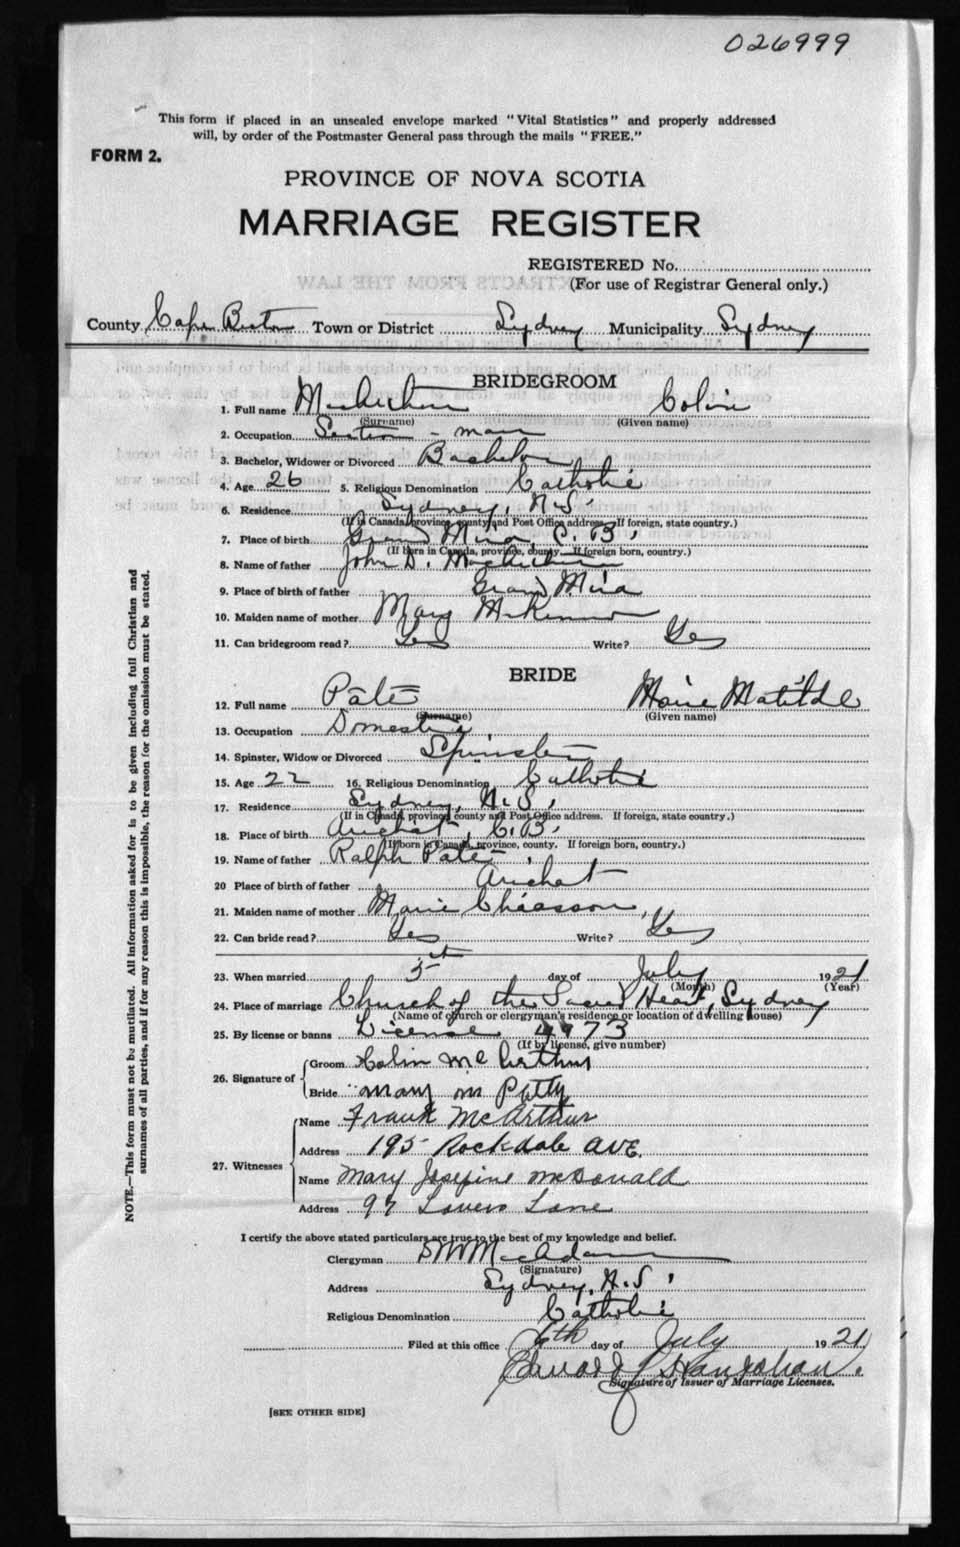 026999
This form if placed in an unsealed envelope marked "Vital Statistics" and properly addressed
will, by order of the Postmaster General pass through the mails "FREE."
FORM 2.
PROVINCE OF NOVA SCOTIA
MARRIAGE REGISTER
REGISTERED No.
(For use of Registrar General only.)
County Cape Breton Town or District Sydney Municipality Sydney
BRIDEGROOM
1. Full name MacArthur Colin
(Surname) (Given name)
2. Occupation Section - man
3. Bachelor, Widower or Divorced Bachelor
4. Age 26 5. Religious Denomination Catholic
6. Residence Sydney, N.S.
(If in Canada, province, county and Post Office address. If foreign, state country.)
7. Place of birth Grand Mira, C.B.
(If born in Canada, province, county. If foreign born, country.)
8. Name of father John D. MacArthur
9. Place of birth of father Grand Mira
10. Maiden name of mother Mary McKinnon
11. Can bridegroom read? Yes Write? Yes
BRIDE
12. Full name Paté Marie Matilde
(Surname) (Given name)
13. Occupation Domestic
14. Spinster, Widow or Divorced Spinster
15. Age 22 16. Religious Denomination Catholic
17. Residence Sydney, N.S.
(If in Canada, province, county and Post Office address. If foreign, state country.)
18. Place of birth Arichat, C.B.
(If born in Canada, province, county. If foreign born, country.)
19. Name of father Ralph Paté
20 Place of birth of father Arichat
21. Maiden name of mother Marie Chiasson
22. Can bride read? Yes Write? Yes
23. When married 5th day of July 1921
(Month) (Year)
24. Place of marriage Church of the Sacred Heart, Sydney
(Name of church or clergyman's residence or location of dwelling house)
25. By license or banns License 4973
(If by license, give number)
26. Signature of Groom Colin McArthur
Bride mary m Patty
27. Witnesses Name Frank McArthur
Address 195 Rockdale AVE.
Name Mary Josefine McDonald
Address 97 Lovers Lane
I certify the above stated particulars are true to the best of my knowledge and belief.
Clergyman MacAdam
(Signature)
Address Sydney, N.S.
Religious Denomination Catholic
Filed at this office 6th day of July 1921
Hanrahan
Signature of Issuer of Marriage Licenses.
[SEE OTHER SIDE]
NOTE.—This form must not be mutilated. All information asked for is to be given including full Christian and
surnames of all parties, and if for any reason this is impossible, the reason for the omission must be stated.